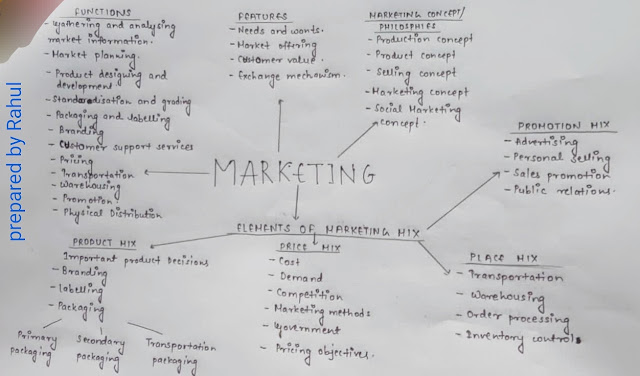 FUNCTIONS
- Gathering and analysing
market information.
- Market planning.
- Product designing and
development
- Standardisation and grading
- Packaging and labelling
- Branding
- Customer support services
- Pricing
- Transportation
- Warehousing
- Promotion
- Physical Distribution
FEATURES
- Needs and wants.
- Market offering
- Customer value.
- Exchange mechanism.
MARKETING CONCEPT/
PHILOSPHIES
- Production concept
- Product concept
- Selling concept
- Marketing concept
- Social Marketing
concept.
PROMOTION MIX
- Advertising
- Personal Selling
- Sales promotion
- Public relations.
MARKETING
ELEMENTS OF MARKETING MIX
PRODUCT MIX
Important product Decisions
- Branding
- labelling
- Packaging
Primary
packaging
Secondary
packaging
Transportation
packaging
PRICE MIX
- Cost
- Demand
- Competition
- Marketing methods
- Government
- Pricing objectives.
PLACE MIX
- Transportation
- Warehousing
- Order processing
- Inventory control
prepared by Rahul